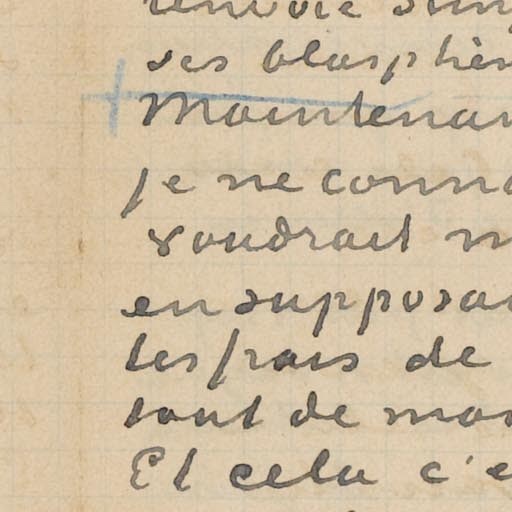 renvoie sim
ses blasphèm
Maintenan
je ne conna
voudrait m
en supposan
les frais de
tout de mon
Et cela c'e